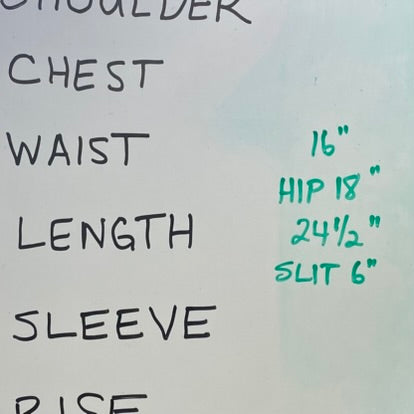 SHOULDER
CHEST
WAIST 16"
HIP 18"
LENGTH 24 1/2"
SLIT 6"
SLEEVE
RISE